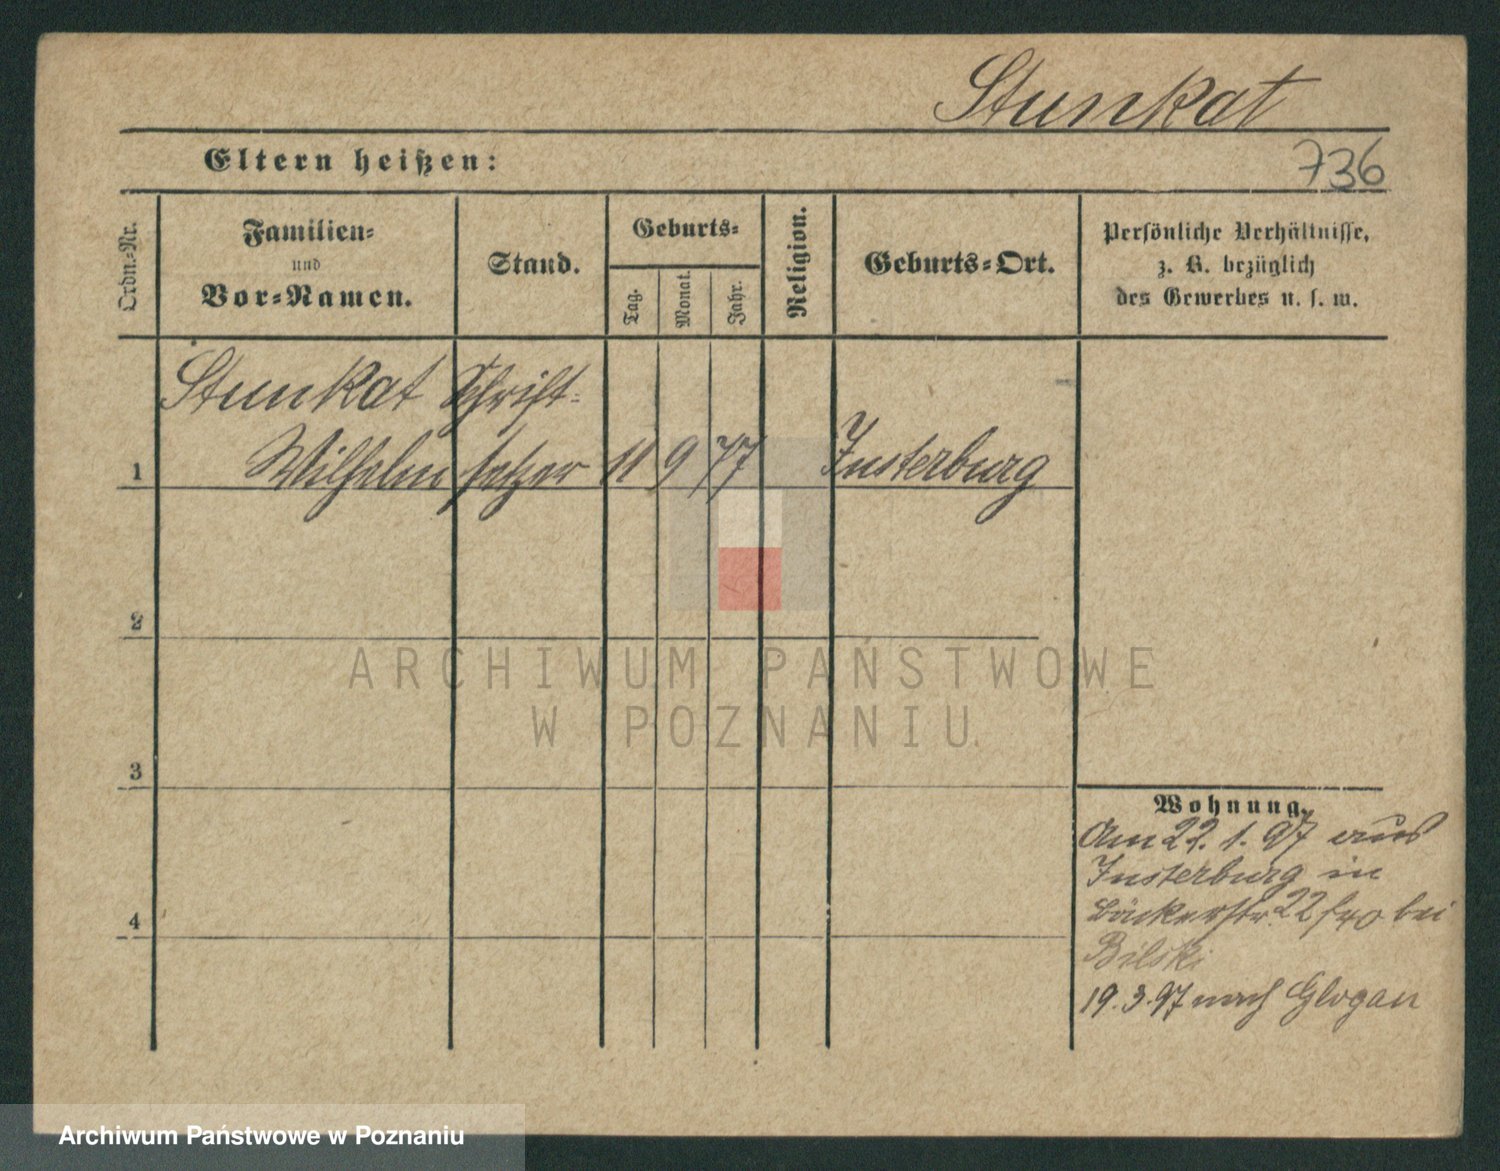 Stunkat
Eltern heißen:
736
Ordn.-Nr.
Familien-
und
Vor-Namen.
Stand.
Geburts-
Tag.
Monat.
Jahr.
Religion.
Geburts-Ort.
Persönliche Verhältnisse,
z. B. bezüglich
des Gewerbes u. s. w.
Stunkat Schrift-
1 Wilhelm setzer 11 9 77 Insterburg
2
3
4
ARCHIWUM PAŃSTWOWE
W POZNANIU
Wohnung.
Am 22. 1. 97 aus
Insterburg in
Bäckerstr. 22 bei
Bilski
19. 3. 97 nach Glogau
Archiwum Państwowe w Poznaniu